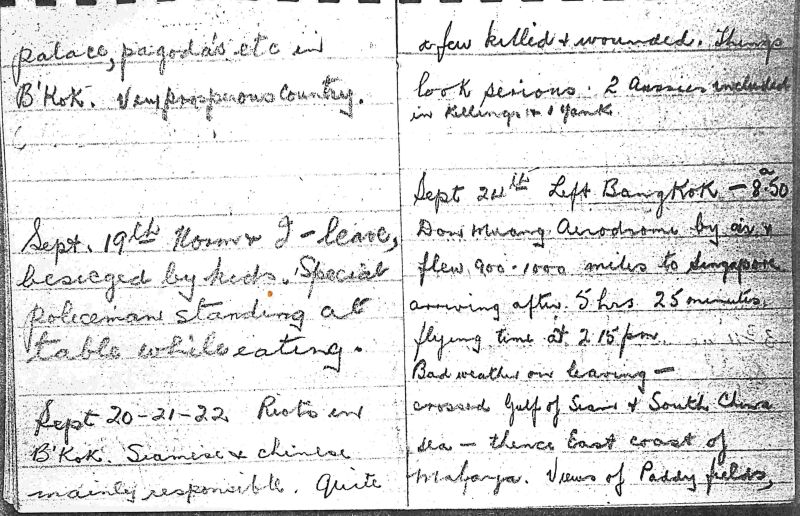 palace, pagoda's etc in
B'Kok. Very prosperous country.
Sept. 19th Norm & I - leave,
besieged by kids. Special
policeman standing at
table while eating.
Sept 20-21-22 Riots in
B'Kok. Siamese & chinese
mainly responsible. Quite
a few killed & wounded. Things
look serious. 2 Aussies included
in killings & 1 Yank.
Sept 24th Left Bangkok - 8.50
Don Muang Aerodrome by air &
flew 900-1000 miles to Singapore
arriving after 5 hrs 25 minutes
flying time at 2 15 pm.
Bad weather on leaving -
crossed Gulf of Siam & South China
sea - thence East coast of
Malaya. Views of Paddy fields,